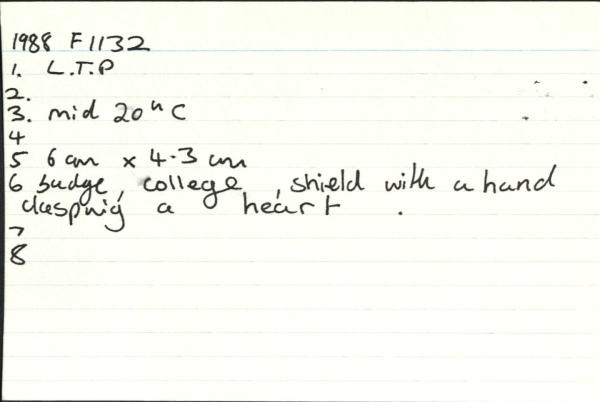 1988 F1132
1. L.T.P
2.
3. mid 20th C
4
5 6 cm x 4.3 cm
6 badge, college, shield with a hand
clasping a heart .
7
8